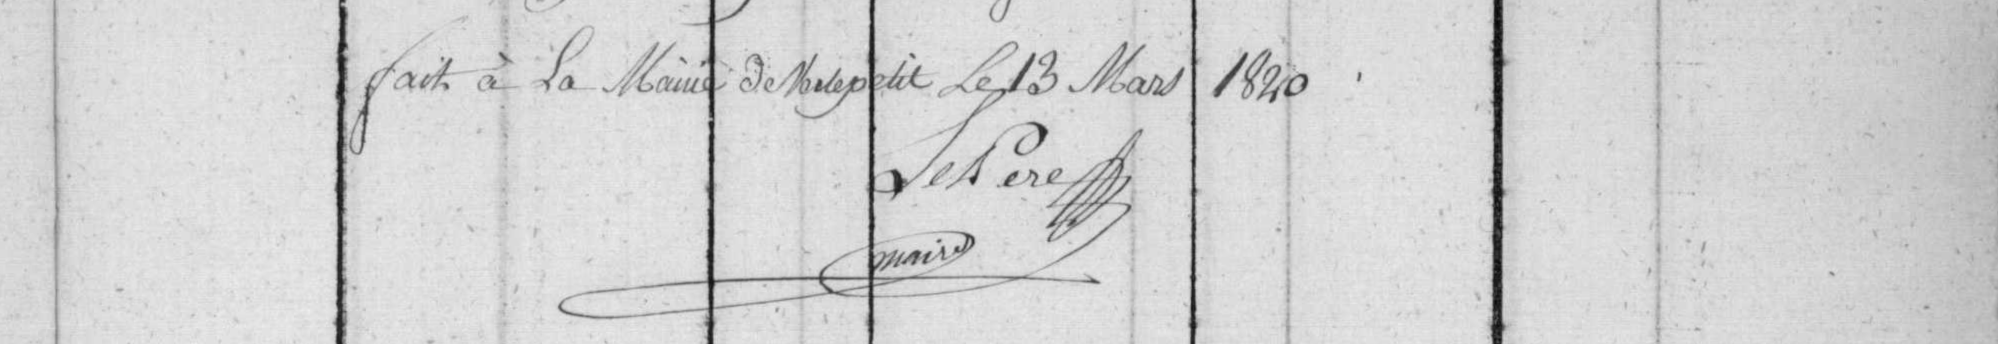 fait à La Mairie de Vertlepetit Le 13 Mars 1820
LePere
maire